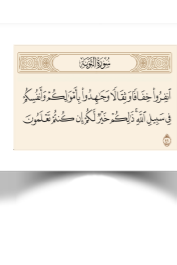 سُورَةُ التَّوْبَةِ
ٱنفِرُواْ خِفَافًا وَثِقَالًا وَجَٰهِدُواْ بِأَمْوَٰلِكُمْ وَأَنفُسِكُمْ
فِى سَبِيلِ ٱللَّهِ ۚ ذَٰلِكُمْ خَيْرٌ لَّكُمْ إِن كُنتُمْ تَعْلَمُونَ